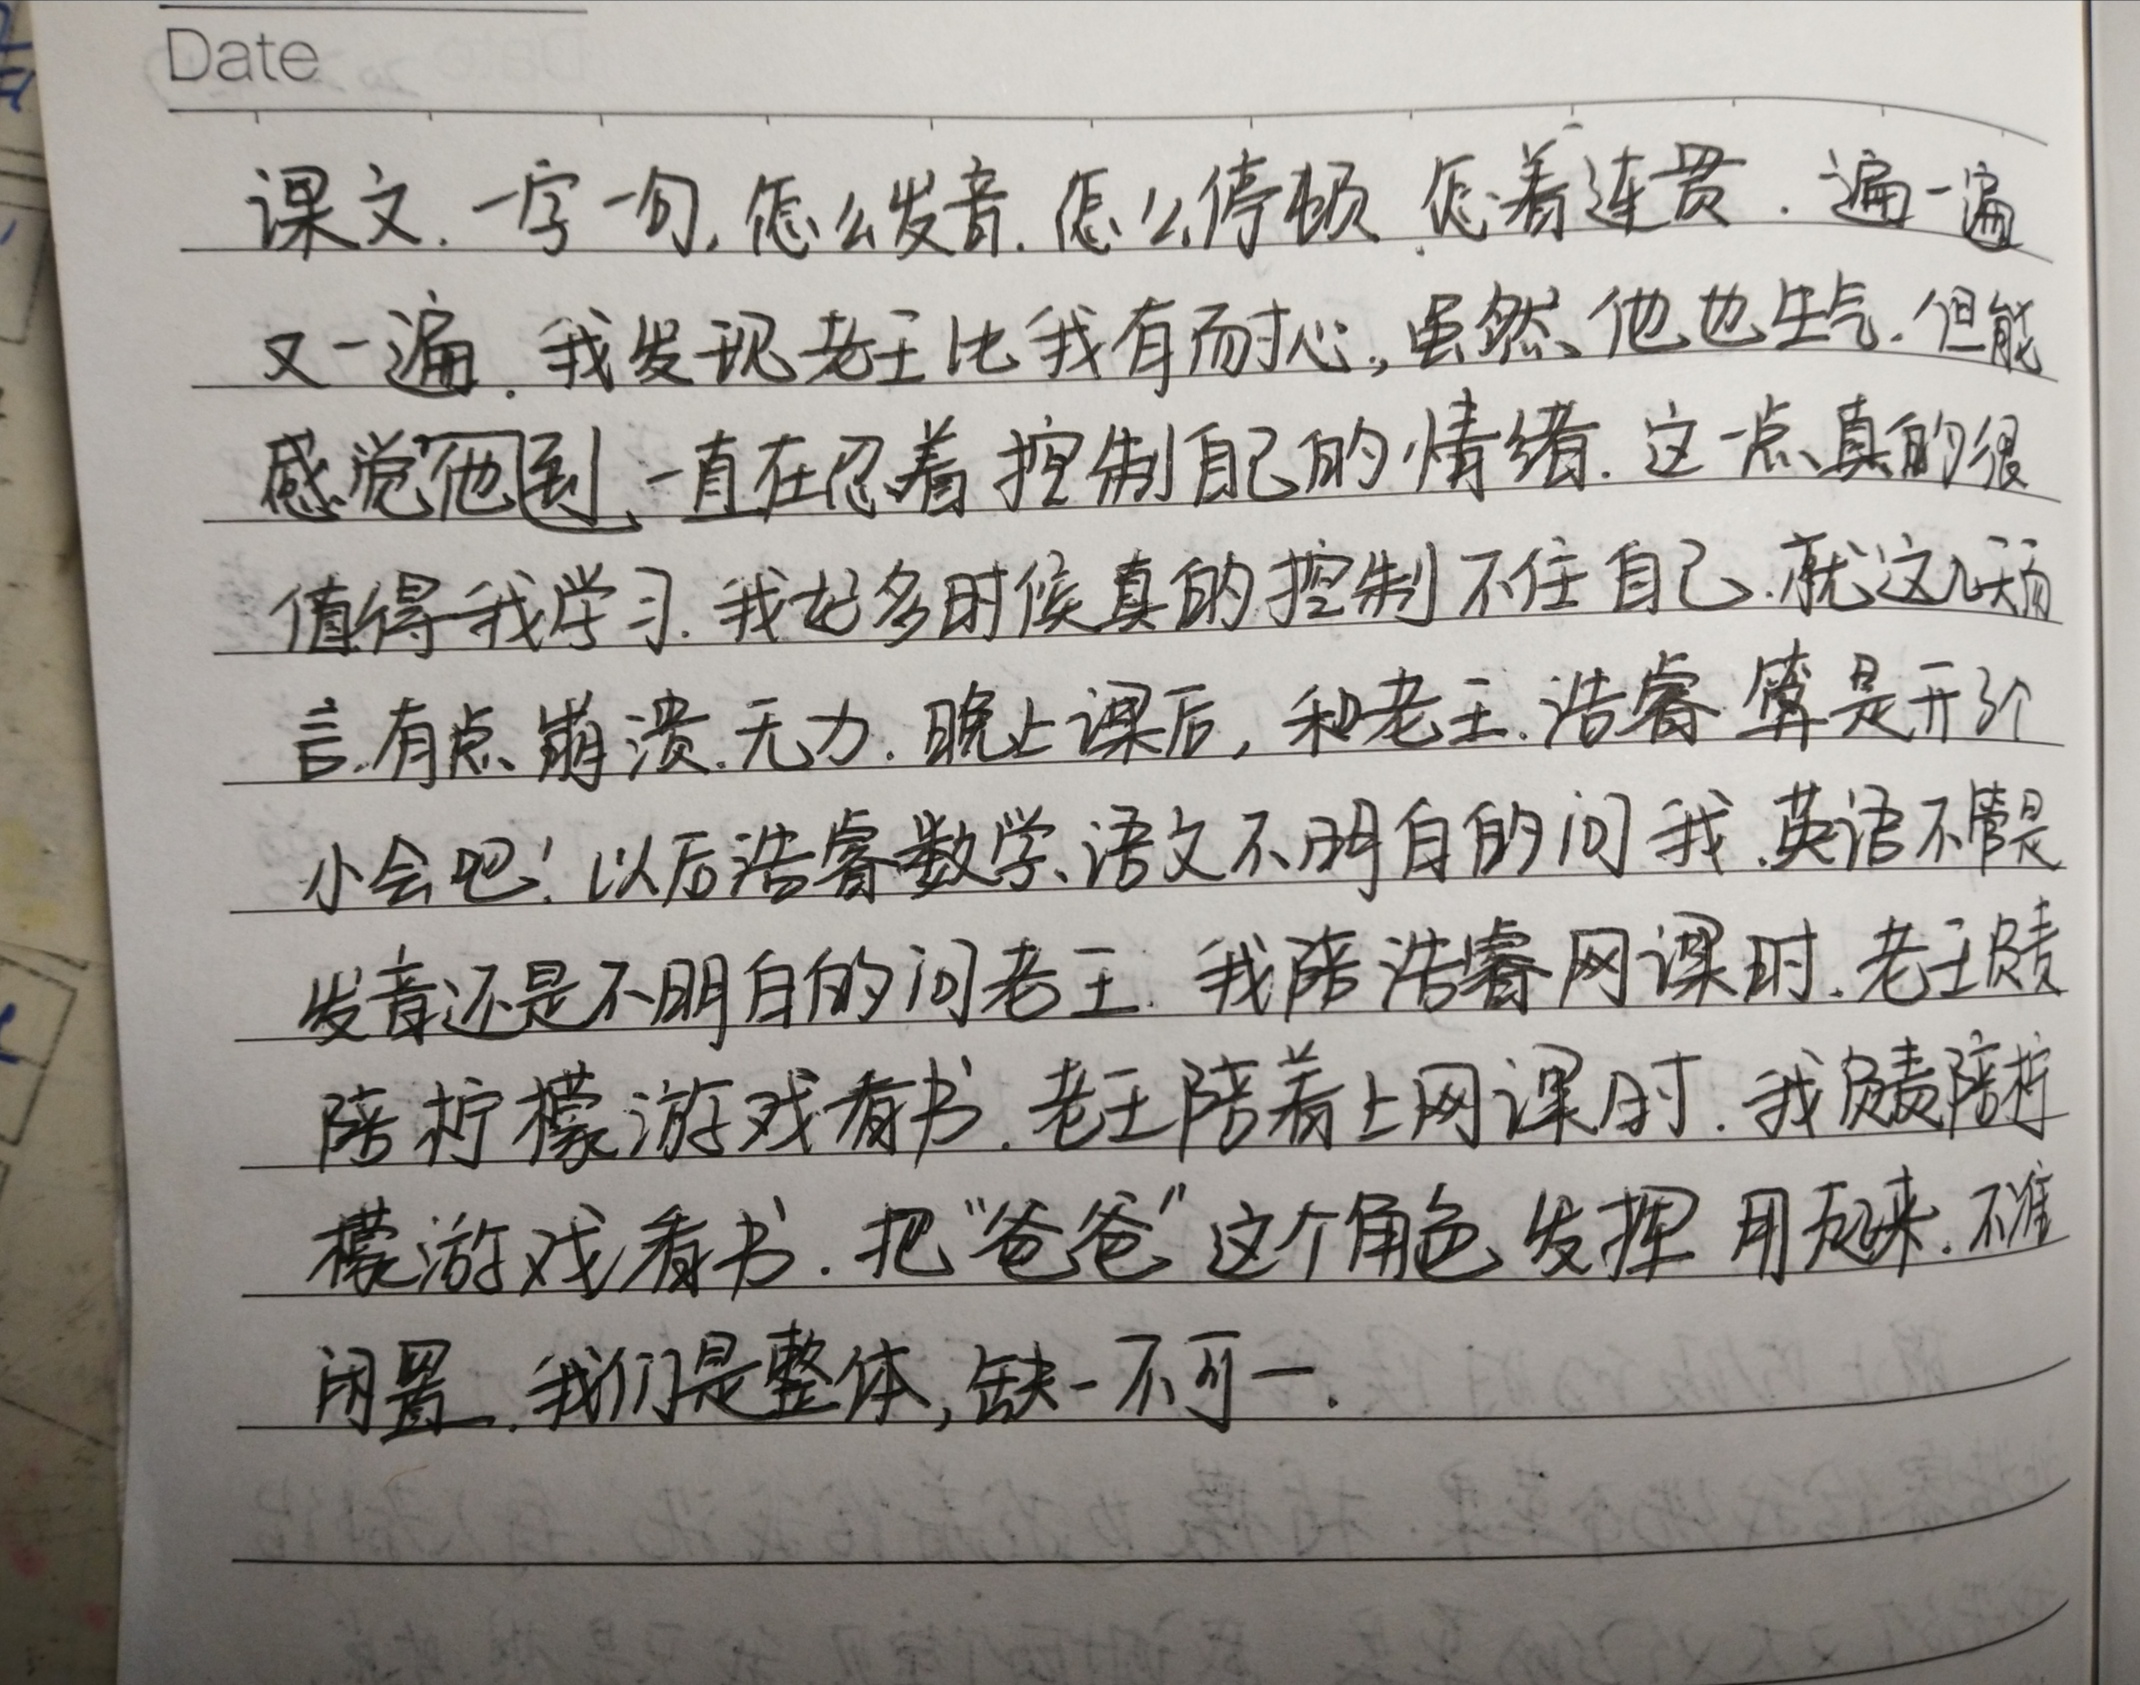 Date
课文.一字一句,怎么发音.怎么停顿.怎着连贯.遍一遍
又一遍.我发现老王比我有耐心,虽然他也生气.但能
感觉他到一直在忍着控制自己的情绪.这一点真的很
值得我学习.我好多时候真的控制不住自己.就这几天而
言.有点崩溃.无力.晚上课后,和老王.浩睿算是开了个
小会吧!以后浩睿数学、语文不明白的问我.英语不管是
发音还是不明白的问老王.我陪浩睿网课时.老王负责
陪柠檬游戏看书.老王陪着上网课时.我负责陪柠
檬游戏看书.把“爸爸”这个角色发挥用起来.不准
闲置.我们是整体,缺一不可一.